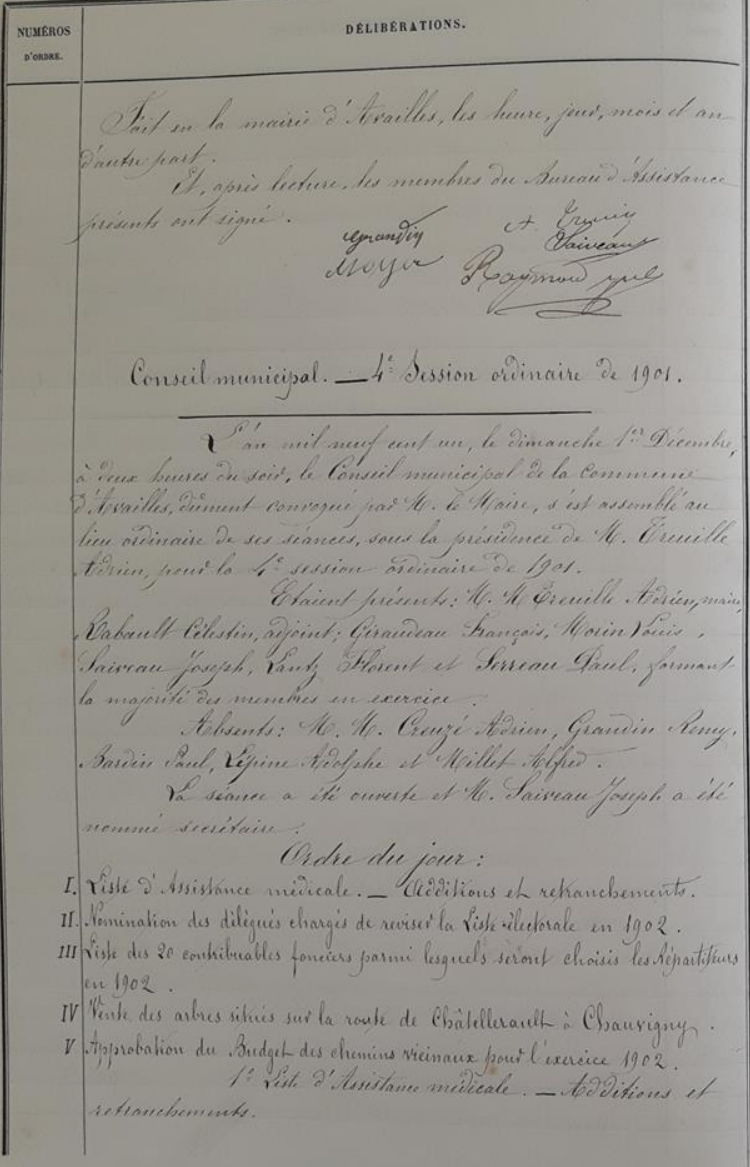 NUMÉROS
D'ORDRE.
DÉLIBÉRATIONS.
Fait en la mairie d'Availles, les heure, jour, mois et an
d'autre part.
Et, après lecture, les membres du Bureau d'Assistance
présents ont signé.
Grandin
A. Treuille
Saiveau
Moyer
Raymond
Conseil municipal. — 4e Session ordinaire de 1901.
L'an mil neuf cent un, le dimanche 1er Décembre,
à deux heures du soir, le Conseil municipal de la commune
d'Availles, dûment convoqué par M. le Maire, s'est assemblé au
lieu ordinaire de ses séances, sous la présidence de M. Treuille
Adrien, pour la 4e session ordinaire de 1901.
Etaient présents: M. M. Treuille Adrien, maire,
Rabault Célestin, adjoint; Giraudeau François, Morin Louis,
Saiveau Joseph, Lantz Florent et Serreau Paul, formant
la majorité des membres en exercice.
Absents: M. M. Creuzé Adrien, Grandin Remy,
Bardin Paul, Lépine Adolphe et Millet Alfred.
La séance a été ouverte et M. Saiveau Joseph a été
nommé secrétaire.
Ordre du jour:
I. Liste d'Assistance médicale. — Additions et retranchements.
II. Nomination des délégués chargés de reviser la Liste électorale en 1902.
III Liste des 20 contribuables fonciers parmi lesquels seront choisis les Répartiteurs
en 1902.
IV Vente des arbres situés sur la route de Châtellerault à Chauvigny.
V Approbation du Budget des chemins vicinaux pour l'exercice 1902.
1° Liste d'Assistance médicale. — Additions et
retranchements.